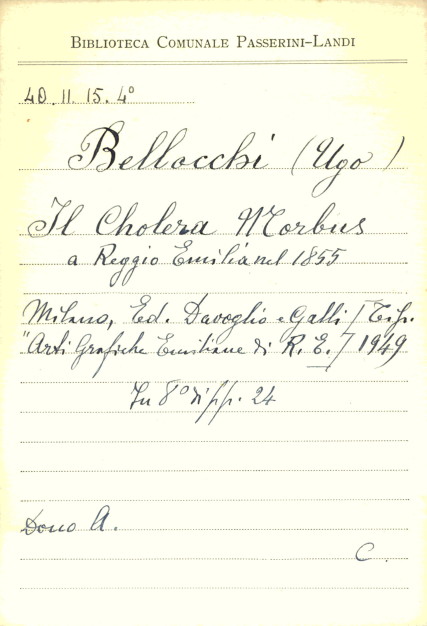 BIBLIOTECA COMUNALE PASSERINI-LANDI
4D. II. 15. 4°
Bellocchi (Ugo)
Il Cholera Morbus
a Reggio Emilia nel 1855
Milano, Ed. Davoglio e Galli / Tip.
"Arti Grafiche Emiliane di R. E. / 1949
In 8° di pp. 24
Dono A.
C.